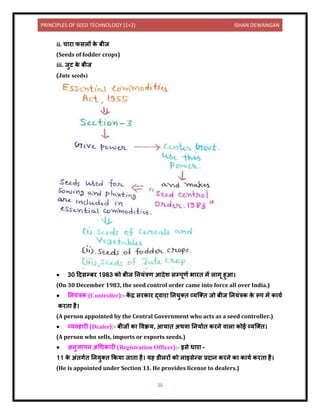 PRINCIPLES OF SEED TECHNOLOGY (1+2) ISHAN DEWANGAN
ii. चारा फसलों के बीज
(Seeds of fodder crops)
iii. जूट के बीज
(Jute seeds)
Essential Commodities
Act, 1955
Section-3
Give power → Center Govt.
use this
Power.
and makes
"Seed control
Order-1983"
Seeds used for
Sowing and planting
are included in
essential commodities.
(i). Seeds of Cereals and
Vegetables
(ii). Seeds of fodder crops.
(iii). Seeds of Jute crop.
• 30 दिसम्बर 1983 को बीज नियंत्रण आदेश सम्पूर्ण भारत में लागू हुआ।
(On 30 December 1983, the seed control order came into force all over India.)
• नियंत्रक (Controller):- केंद्र सरकार द्वारा नियुक्त व्यक्ति जो बीज नियंत्रक के रुप में कार्य
करता है।
(A person appointed by the Central Government who acts as a seed controller.)
• व्यवहारी (Dealer):- बीजों का विक्रय, आयात अथवा निर्यात करने वाला कोई व्यक्ति।
(A person who sells, imports or exports seeds.)
• अनुज्ञापन अधिकारी (Registration Officer):- इसे धारा –
11 के अंतर्गत नियुक्त किया जाता है। यह डीलरों को लाइसेन्स प्रदान करने का कार्य करता है।
(He is appointed under Section 11. He provides license to dealers.)
36